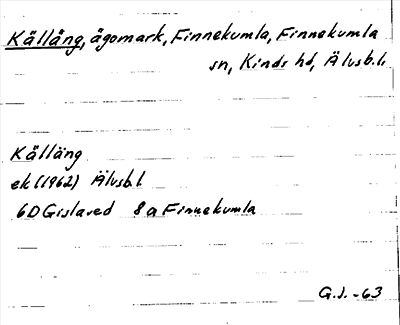 Källäng, ägomark, Finnekumla, Finnekumla
sn, Kinds hd, Älvsb.l.
Källäng
ek (1962) Älvsb.l
6D Gislaved 8a Finnekumla
G.J. -63